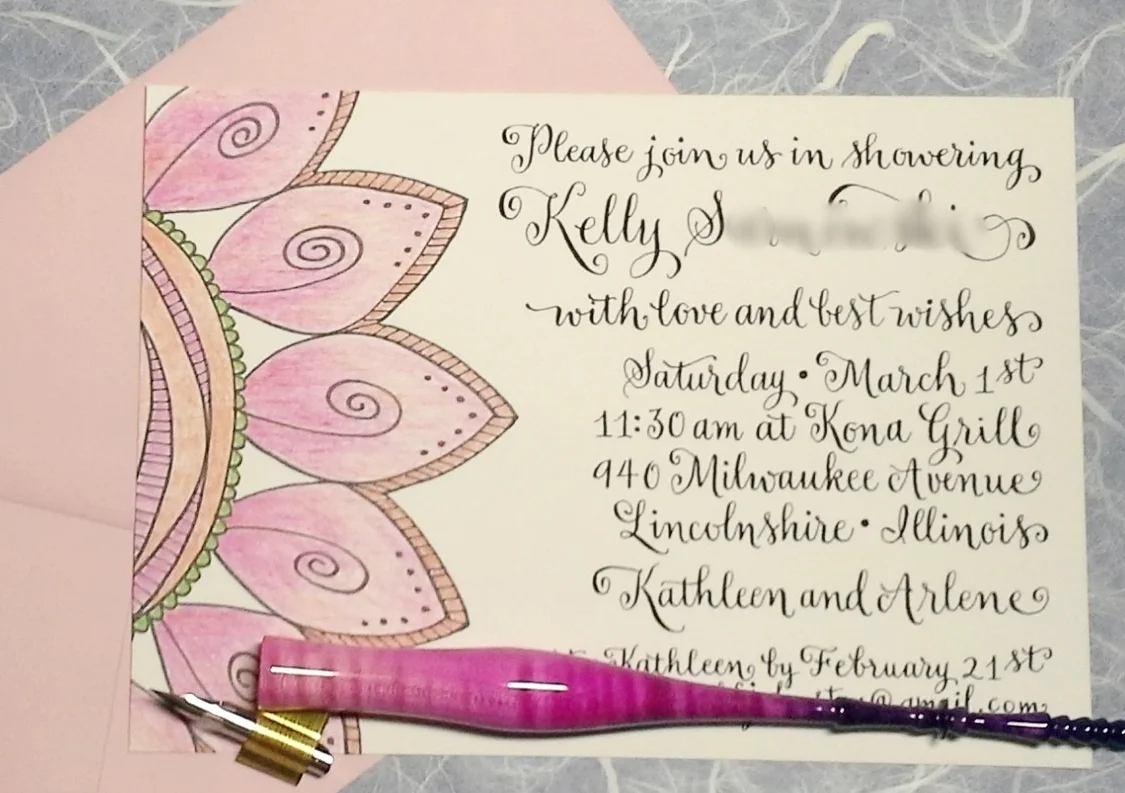 Please join us in showering
Kelly
with love and best wishes
Saturday • March 1st
11:30 am at Kona Grill
940 Milwaukee Avenue
Lincolnshire • Illinois
Kathleen and Arlene
Kathleen by February 21st
@gmail.com